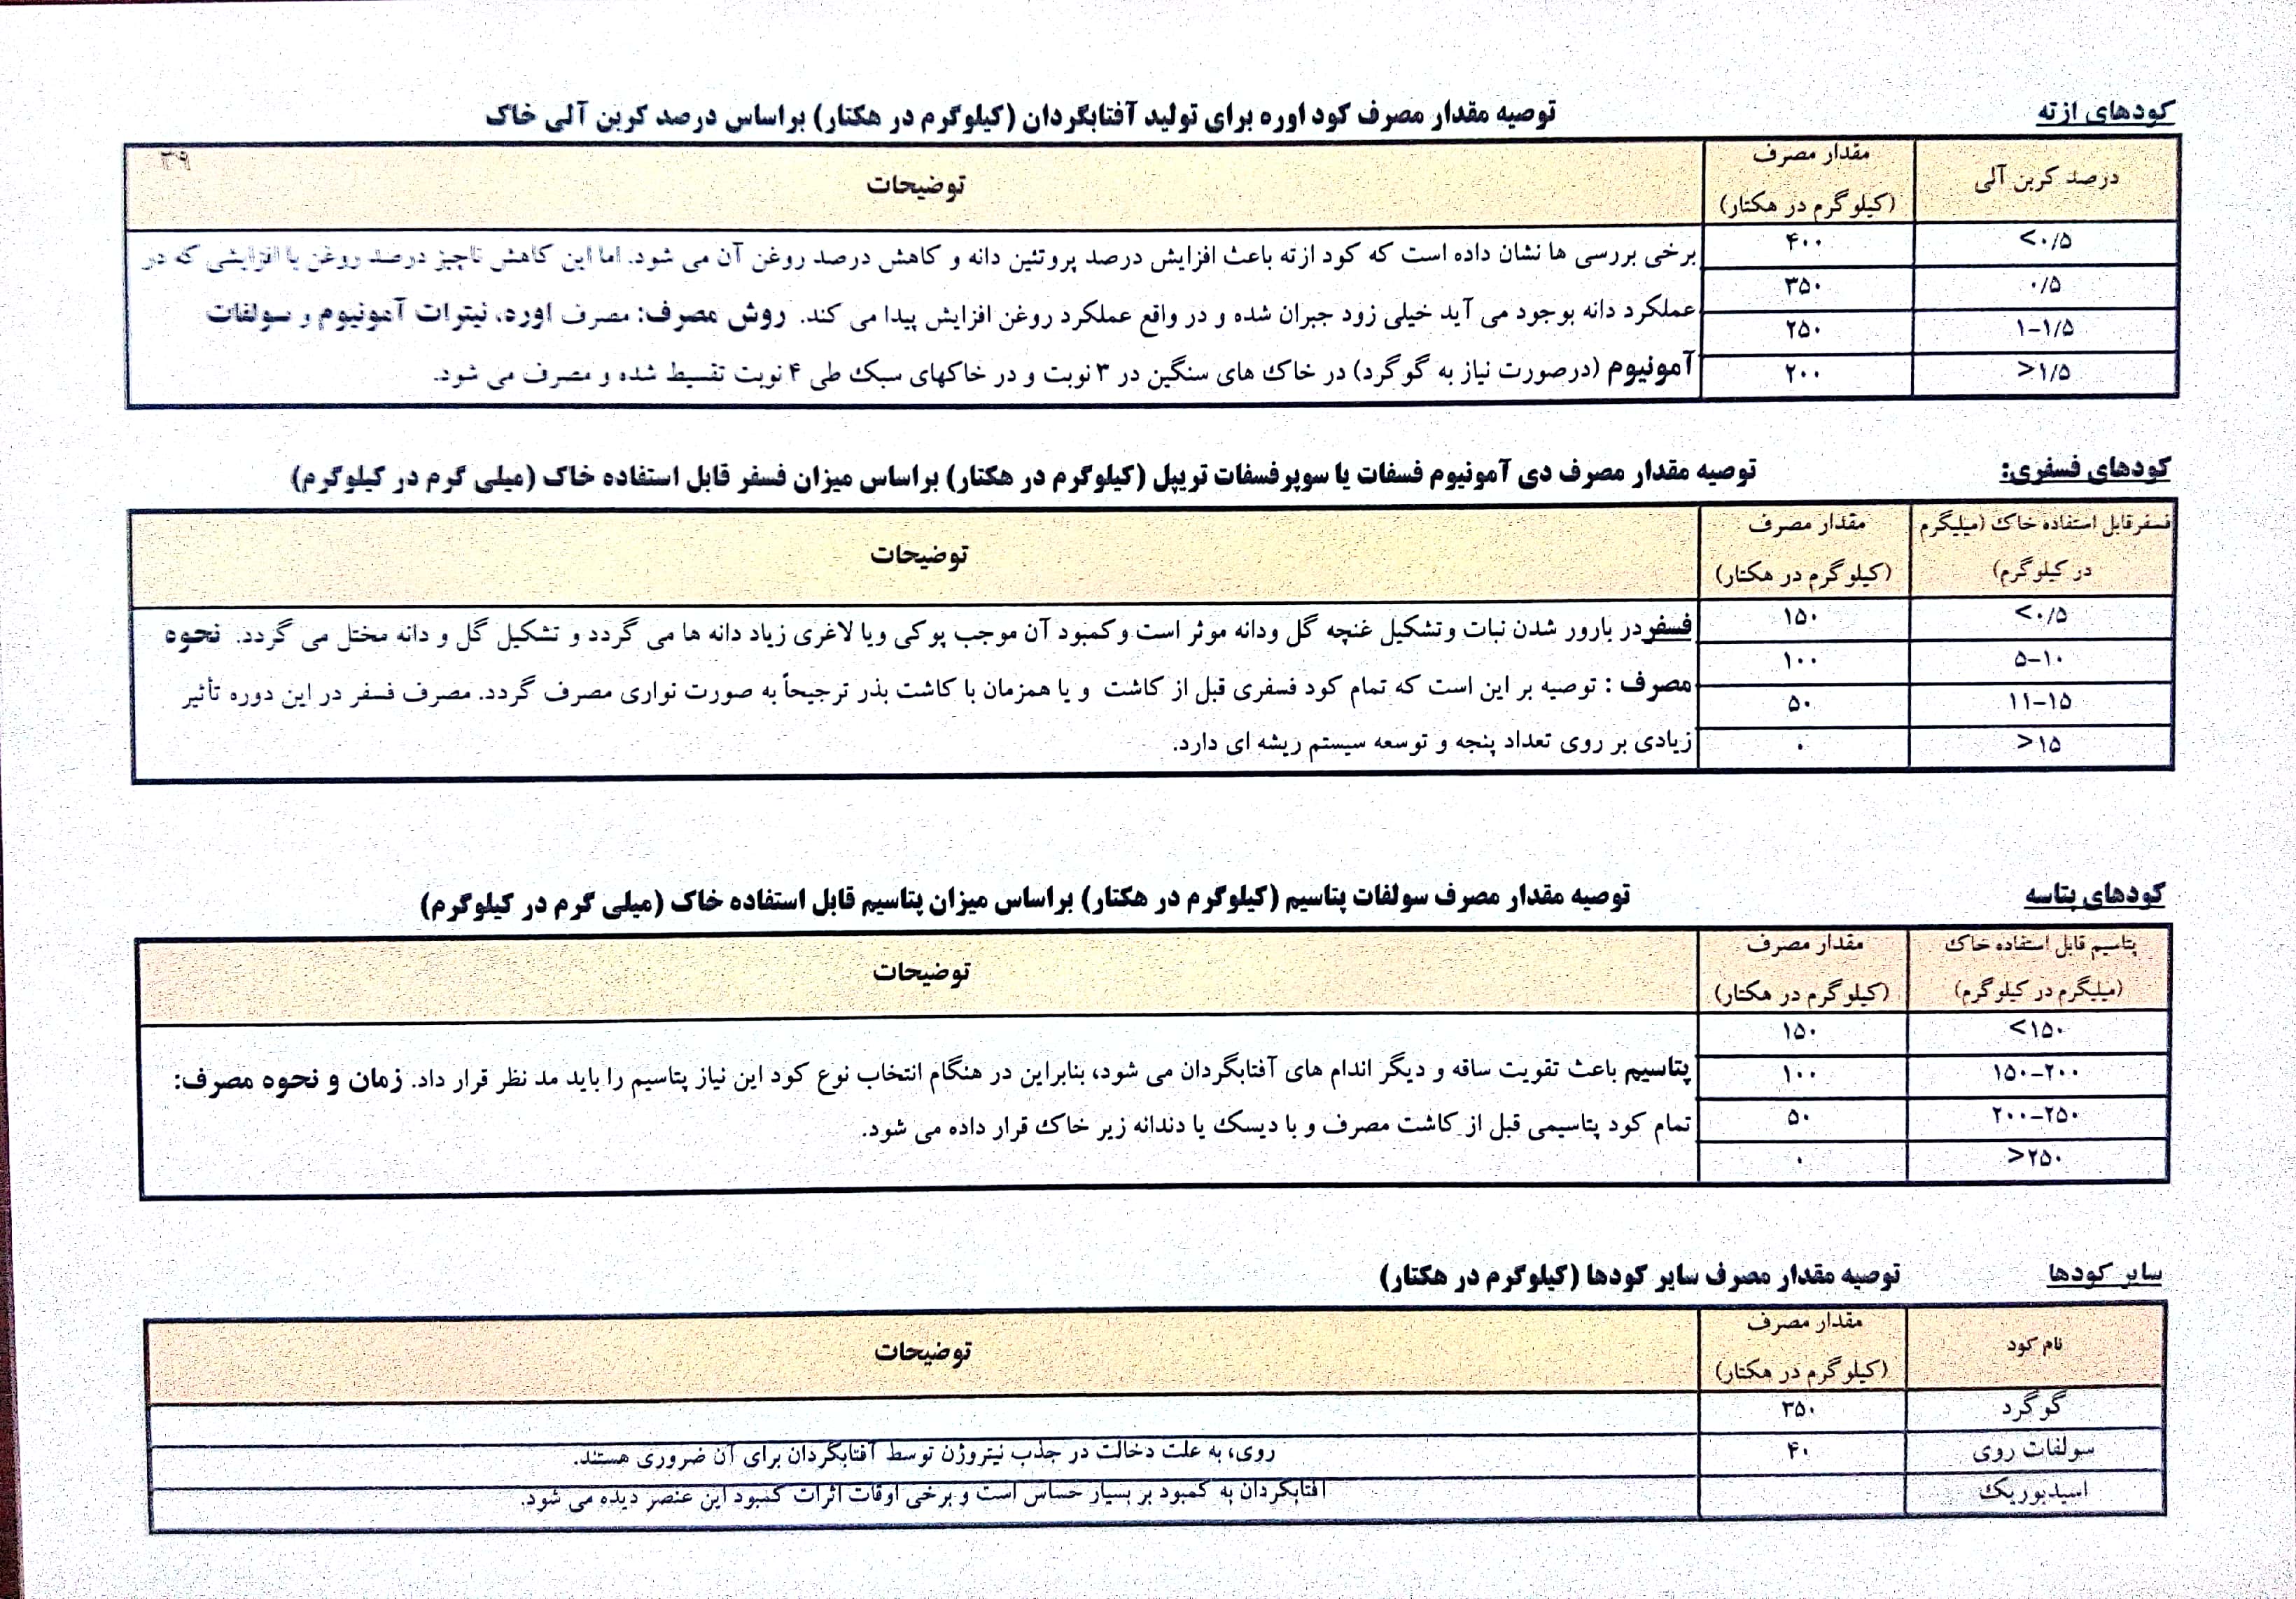 کودهای ازته
توصیه مقدار مصرف کود اوره برای تولید آفتابگردان (کیلوگرم در هکتار) براساس درصد کربن آلی خاک
۳۹
درصد کربن آلی
مقدار مصرف
(کیلوگرم در هکتار)
توضیحات
<۰/۵
۴۰۰
۰/۵
۳۵۰
۱-۱/۵
۲۵۰
>۱/۵
۲۰۰
برخی بررسی ها نشان داده است که کود ازته باعث افزایش درصد پروتئین دانه و کاهش درصد روغن آن می شود. اما این کاهش ناچیز درصد روغن با افزایشی که در
عملکرد دانه بوجود می آید خیلی زود جبران شده و در واقع عملکرد روغن افزایش پیدا می کند. روش مصرف: مصرف اوره، نیترات آمونیوم و سولفات
آمونیوم (درصورت نیاز به گوگرد) در خاک های سنگین در ۳ نوبت و در خاکهای سبک طی ۴ نوبت تقسیط شده و مصرف می شود.
کودهای فسفری:
توصیه مقدار مصرف دی آمونیوم فسفات یا سوپرفسفات تریپل (کیلوگرم در هکتار) براساس میزان فسفر قابل استفاده خاک (میلی گرم در کیلوگرم)
فسفرقابل استفاده خاک (میلیگرم
در کیلوگرم)
مقدار مصرف
(کیلوگرم در هکتار)
توضیحات
<۰/۵
۱۵۰
۵-۱۰
۱۰۰
۱۱-۱۵
۵۰
>۱۵
۰
فسفردر بارور شدن نبات وتشکیل غنچه گل ودانه موثر است وکمبود آن موجب پوکی ویا لاغری زیاد دانه ها می گردد و تشکیل گل و دانه مختل می گردد. نحوه
مصرف : توصیه بر این است که تمام کود فسفری قبل از کاشت و یا همزمان با کاشت بذر ترجیحاً به صورت نواری مصرف گردد. مصرف فسفر در این دوره تأثیر
زیادی بر روی تعداد پنجه و توسعه سیستم ریشه ای دارد.
کودهای پتاسه
توصیه مقدار مصرف سولفات پتاسیم (کیلوگرم در هکتار) براساس میزان پتاسیم قابل استفاده خاک (میلی گرم در کیلوگرم)
پتاسیم قابل استفاده خاک
(میلیگرم در کیلوگرم)
مقدار مصرف
(کیلوگرم در هکتار)
توضیحات
<۱۵۰
۱۵۰
۱۵۰-۲۰۰
۱۰۰
۲۰۰-۲۵۰
۵۰
>۲۵۰
۰
پتاسیم باعث تقویت ساقه و دیگر اندام های آفتابگردان می شود، بنابراین در هنگام انتخاب نوع کود این نیاز پتاسیم را باید مد نظر قرار داد. زمان و نحوه مصرف:
تمام کود پتاسیمی قبل از کاشت مصرف و با دیسک یا دندانه زیر خاک قرار داده می شود.
سایر کودها
توصیه مقدار مصرف سایر کودها (کیلوگرم در هکتار)
نام کود
مقدار مصرف
(کیلوگرم در هکتار)
توضیحات
گوگرد
۳۵۰
سولفات روی
۴۰
روی، به علت دخالت در جذب نیتروژن توسط آفتابگردان برای آن ضروری هستند.
اسیدبوریک
آفتابگردان به کمبود بر بسیار حساس است و برخی اوقات اثرات کمبود این عنصر دیده می شود.